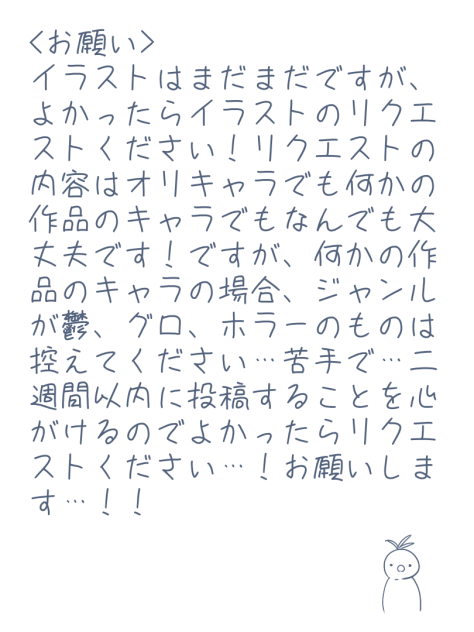 <お願い>
イラストはまだまだですが、
よかったらイラストのリクエ
ストください!リクエストの
内容はオリキャラでも何かの
作品のキャラでもなんでも大
丈夫です!ですが、何かの作
品のキャラの場合、ジャンル
が鬱、グロ、ホラーのものは
控えてください…苦手で…二
週間以内に投稿することを心
がけるのでよかったらリクエ
ストください…!お願いしま
す…!!